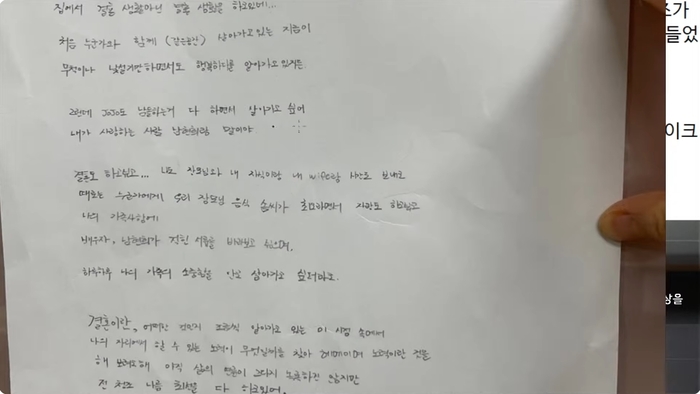 집에서 결혼 생활아닌 결혼 생활을 하고있네...
처음 누군가와 함께 (같은공간) 살아가고 있는 지금이
무척이나 낯설지만 하면서도 행복이란걸 알아가고 있거든
그런데 JoJo도 남들하는거 다 하면서 살아가고 싶어
내가 사랑하는 사람 남현희랑 말이야
결혼도 하고싶고... 나도 장모님과 내 자식이랑 내 wife랑 시간도 보내고
때로는 누군가에게 우리 장모님 음식 솜씨가 최고라면서 자랑도 하고싶고
나의 가족사항에
배우자, 남현희가 적힌 이름을 바라보고 싶으며,
하루하루 나의 가족의 소중함을 안고 살아가고 싶더라고.
결혼이란, 어떠한 건인지 조금씩 알아가고 있는 이 시점 속에서
나의 자리에서 할 수 있는 노력이 무엇일까를 찾아 헤매이며 노력이란 것을
해 보려고해 아직 삶의 연륜이 그다지 높지 않지만
전 청조 나름 최선을 다 하고있어.
조가
들었
이크
상을